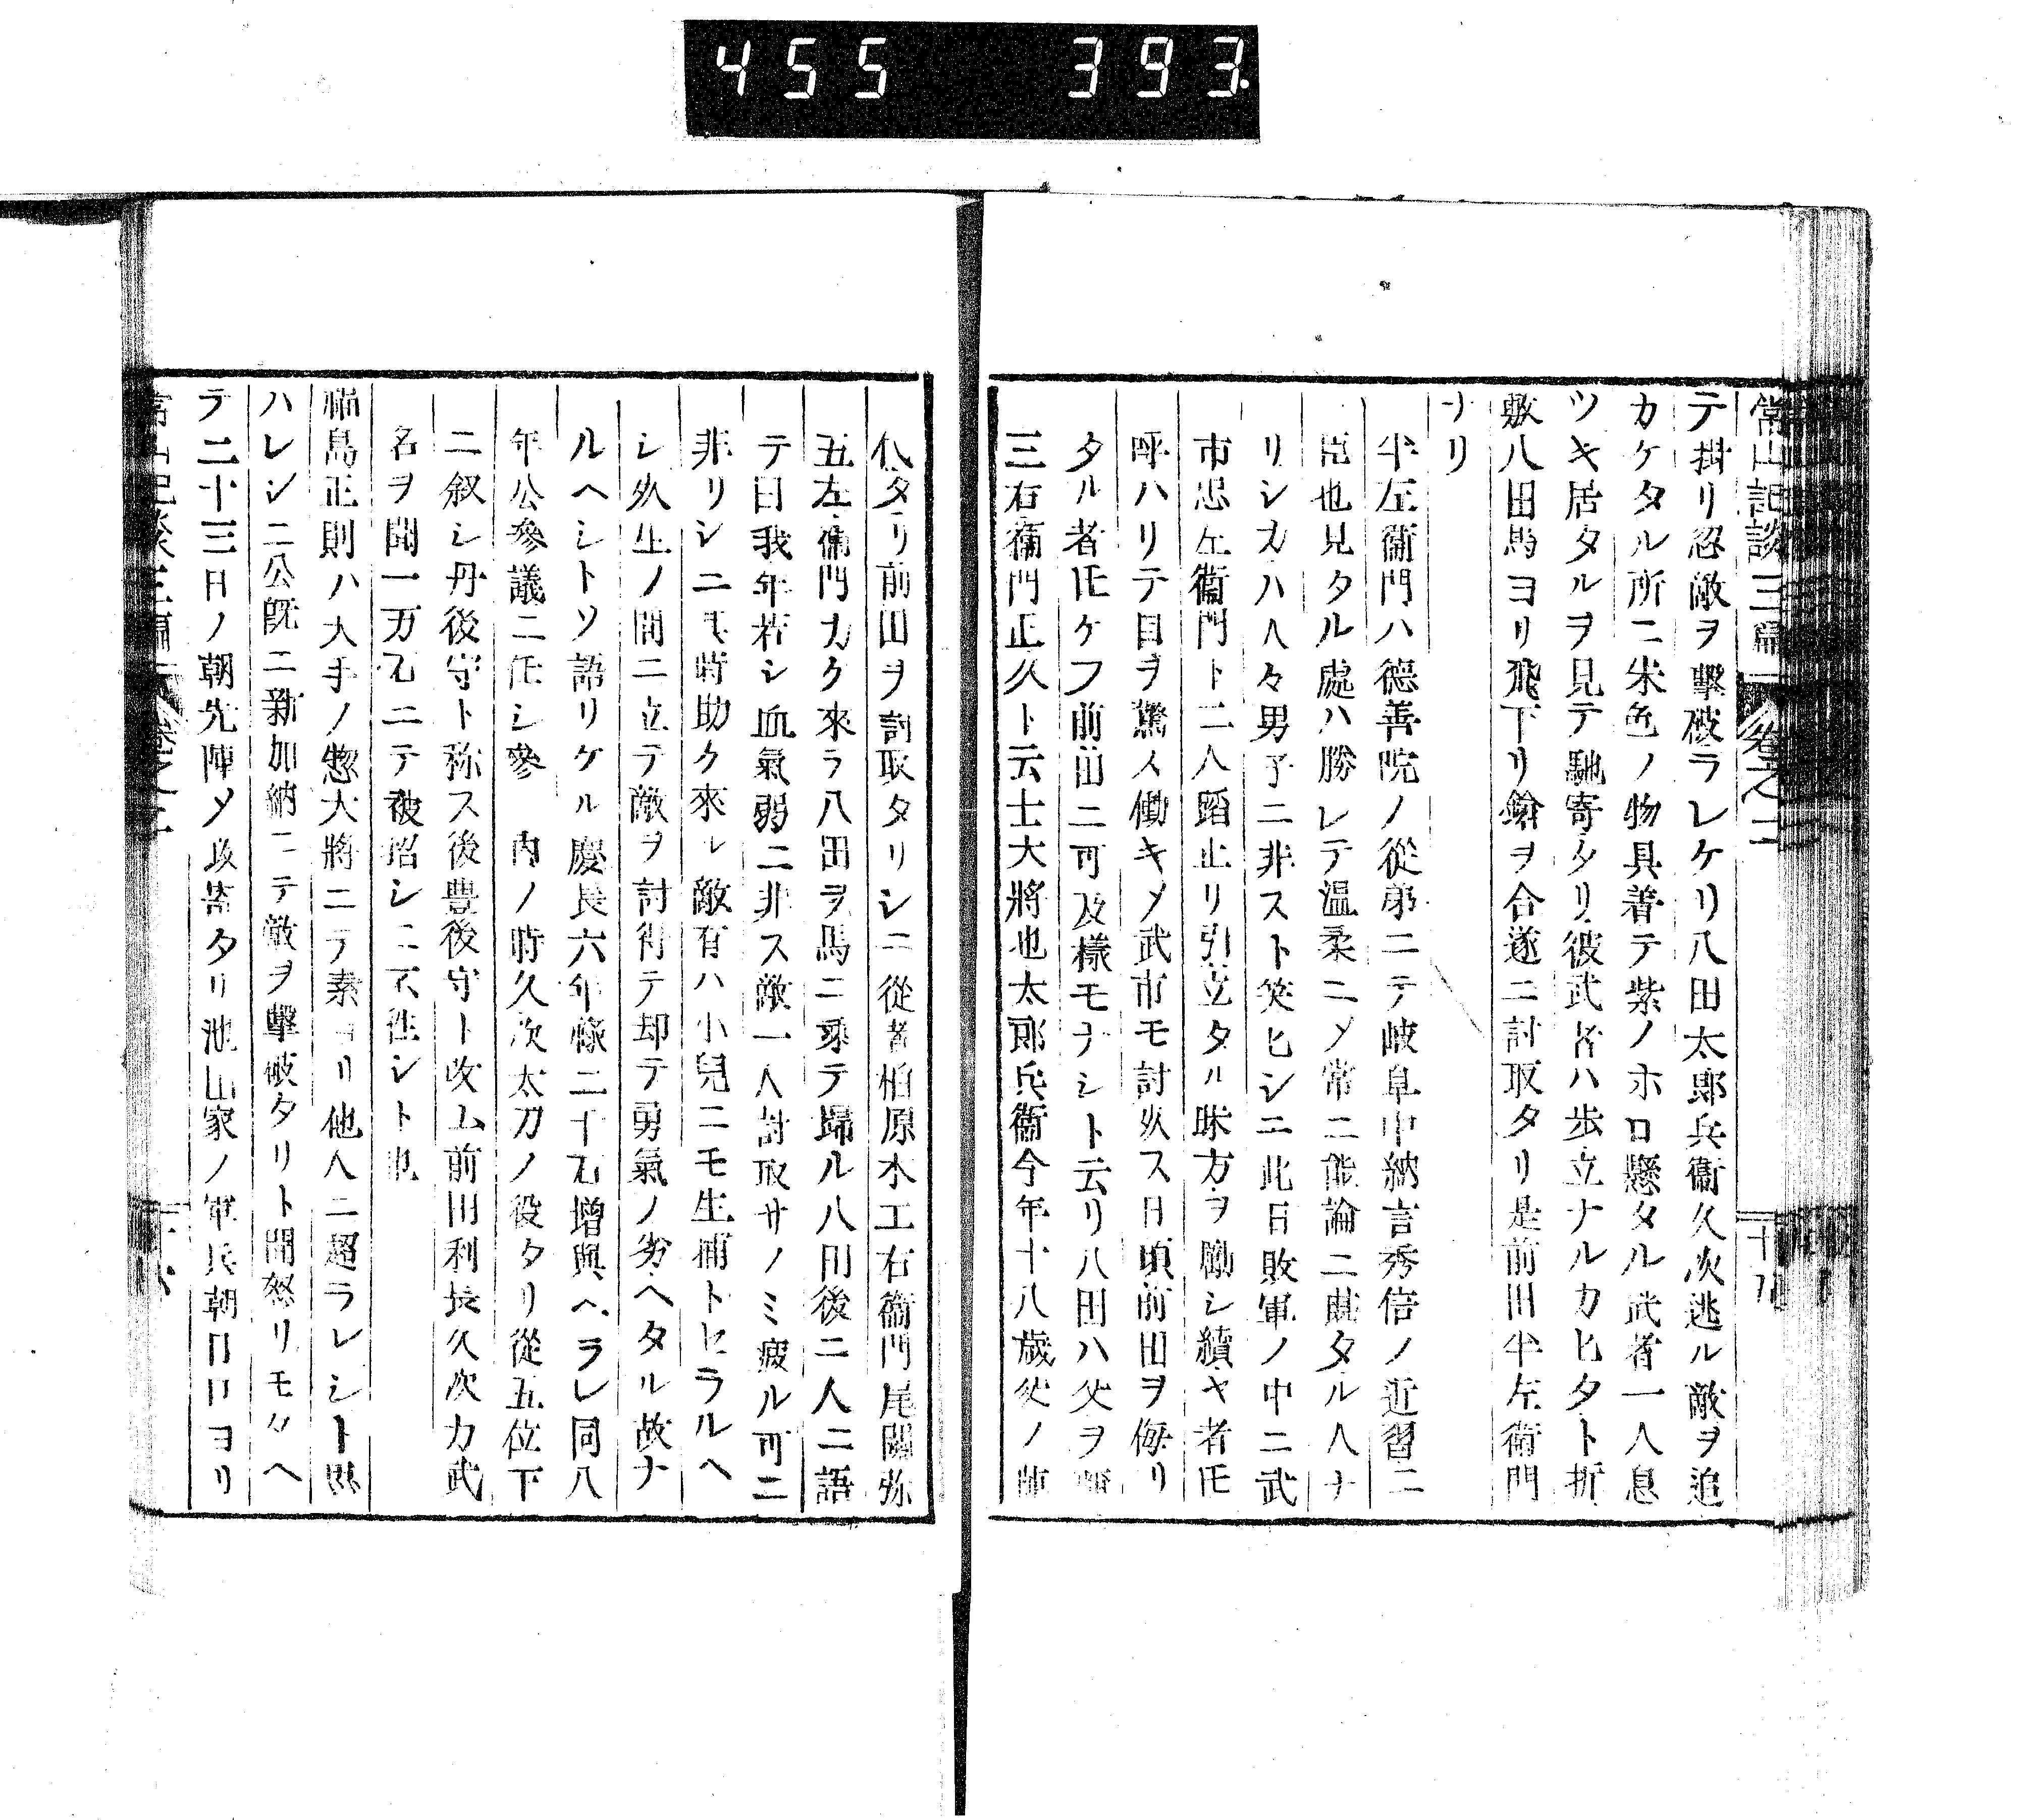 455 393
常山記談三編 卷之二 十九
テ掛リ忍敵ヲ擊破ラレケリ八田太郎兵衞久次逃ル敵ヲ追
カケタル所ニ朱色ノ物具着テ紫ノホロ懸タル武者一人息
ツキ居タルヲ見テ馳寄タリ彼武者ハ歩立ナルカヒタト折
敷八田馬ヨリ飛下リ鎗ヲ合遂ニ討取タリ是前田半左衞門
ナリ
半左衞門ハ德善院ノ從弟ニテ岐阜中納言秀信ノ近習ニ
見タル處ハ勝レテ温柔ニメ常ニ能論ニ タル人ナ
リシカハ人々男子ニ非スト笑ヒシニ此日敗軍ノ中ニ武
市忠左衞門ト二人蹈止リ引立タル味方ヲ勵シ續ヤ者圧
呼ハリテ目ヲ驚ス働キメ武市モ討死ス日頃前田ヲ侮リ
タル者圧ケフ前田ニ可及樣モナシト云リ八田ハ父ヲ
三右衞門正久ト云士大將也太郎兵衞今年十八歳父ノ
仇タリ前田ヲ討取タリシニ從者柏原木工右衞門尾關弥
五左衞門カク來ラ八田ヲ馬ニ乘テ歸ル八田後ニ人ニ語
テ曰我年若シ血氣弱ニ非ス敵一人討取サノミ疲ル可ニ
非リシニ其時助ク來ル敵有ハ小兒ニモ生捕トセラルヘ
シ死生ノ間ニ立テ敵ヲ討得テ却テ勇氣ノ劣ヘタル故ナ
ルヘシトソ語リケル慶長六年祿二千石增與ヘラレ同八
年公參議ニ任シ參 内ノ時久次太刀ノ役タリ從五位下
ニ叙シ丹後守ト称ス後豊後守ト改ム前田利長久次カ武
名ヲ聞一万石ニテ被招シニ不往シト也
福島正則ハ大手ノ惣大將ニテ素ヨリ他人ニ超ラレシト思
ハレシニ公既ニ新加納ニテ敵ヲ擊破タリト聞怒リモタヘ
テ二十三日ノ朝先陣メ攻 タリ池 家ノ軍兵朝日口ヨリ